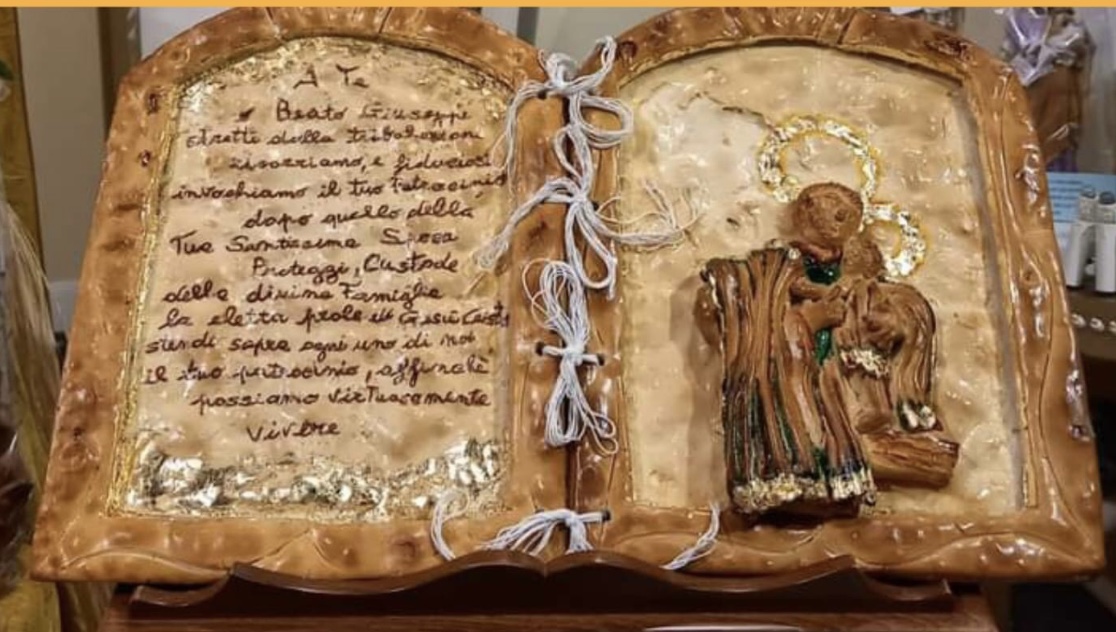 A Te
Beato Giuseppe
stretti dalla tribolazioni
ricorriamo, e fiduciosi
invochiamo il tuo Patrocinio
dopo quello della
Tua Santissima Sposa
Proteggi, Custode
della divina Famiglia
la eletta prole di Gesù Cristo
stendi sopra ogni uno di noi
il tuo patrocinio, affinchè
possiamo virtuosamente
vivere